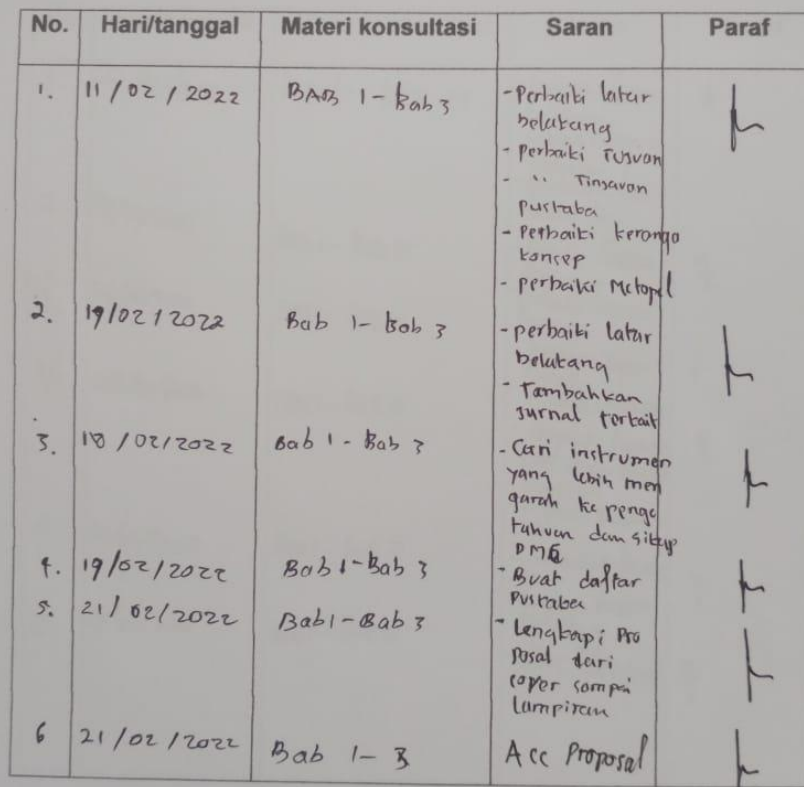 No. Hari/tanggal Materi konsultasi Saran Paraf
1. 11/02/2022 BAB 1-Bab 3 -Perbaiki latar
belakang
- perbaiki Tujuan
- " Tinjauan
pustaka
- Perbaiki keranga
konsep
- perbaiki Metopel
2. 19/02/2022 Bab 1-Bab 3 -perbaiki latar
belakang
- Tambahkan
Jurnal terkait
3. 18/02/2022 Bab 1-Bab 3 -Cari instrumen
yang lebih men
garah ke penge
tahuan dan sikap
4. 19/02/2022 Bab 1-Bab 3 - Buat daftar
Pustaka
5. 21/02/2022 Bab1-Bab 3 - Lengkapi Pro
posal dari
cover sampai
Lampiran
6 21/02/2022 Bab 1-3 Acc Proposal